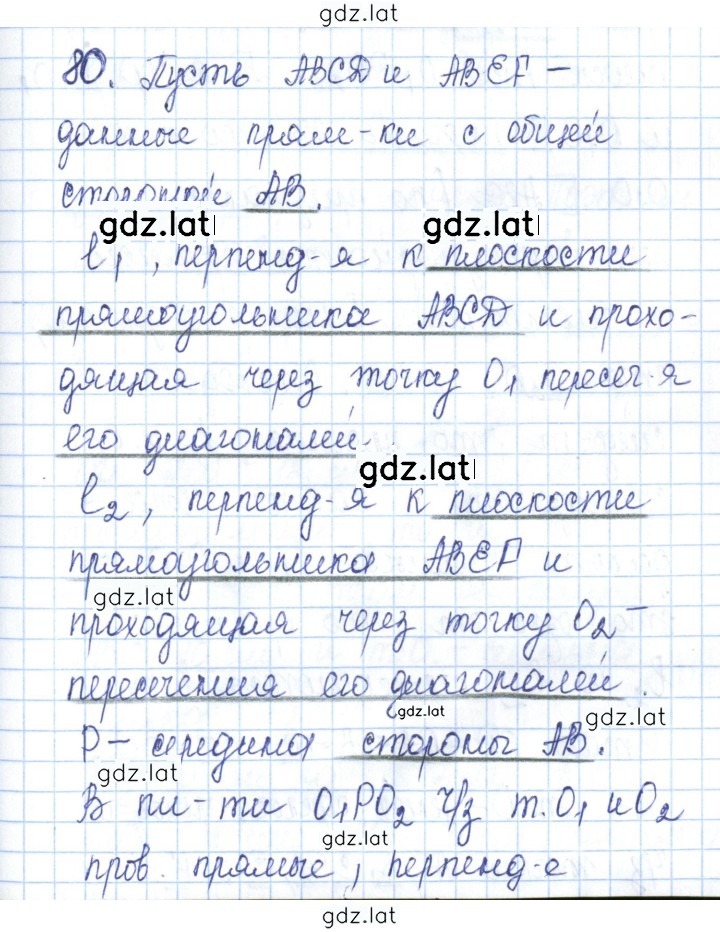 gdz.lat
80. Пусть ABCD и ABEF –
данные прям-ки с общей
стороной AB.
gdz.lat gdz.lat
l₁, перпенд-я к плоскости
прямоугольника ABCD и прохо-
дящая через точку O₁ пересеч-я
его диагоналей.
gdz.lat
l₂, перпенд-я к плоскости
прямоугольника ABEF и
gdz.lat
проходящая через точку O₂ –
пересечения его диагоналей.
gdz.lat gdz.lat
P – середина стороны AB.
gdz.lat
В пл-ти O₁PO₂ ч/з т. O₁ и O₂
gdz.lat
пров. прямые, перпенд-е
gdz.lat